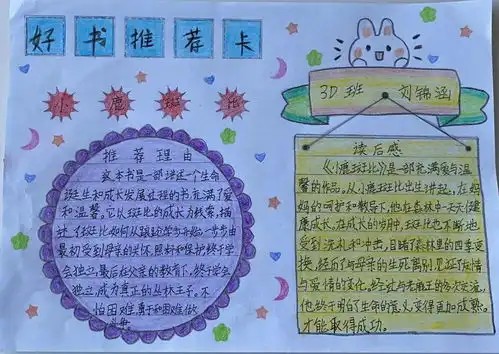 好书推荐卡
小鹿斑比
3D班 刘锦涵
推荐理由
这本书是一部讲述一个生命
诞生和成长发展过程的书,充满了爱
和温馨。它以斑比的成长为线索,描
述了斑比如何从蹒跚学步开始一步步由
最初受到母亲的关怀、照料和保护,终于学
会独立,最后在父亲的教育下,终于学会
独立,成为真正的丛林王子。不
怕困难,勇于和困难做
斗争
读后感
《小鹿斑比》是一部充满爱与温
馨的作品。从小鹿斑比出生讲起,在妈
妈的呵护和教导下,他在森林中一天天健
康成长,在成长的历中,斑比也不断地
受到洗礼和冲击,目睹了森林里的四季变
换,经历了与母亲的生死离别,见证了友情
与爱情的变化,经过与老鹿王的多次交流,
他终于明白了生命的意义,变得更加成熟。
才能取得成功。